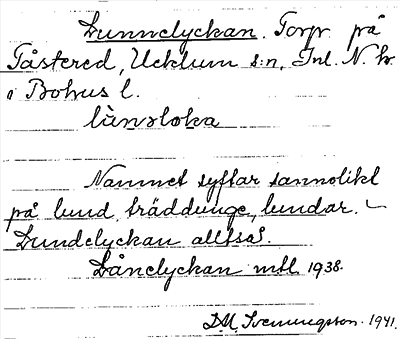 Lunnelyckan. Torp på
Tåstered, Ucklum s:n, Inl. N. hd
i Bohus l.
lùnəloka
Namnet syftar sannolikt
på lund, träddunge, lundar. –
Lundelyckan alltså.
Lånelyckan mtl 1938.
D.M. Svenungsson. 1941.